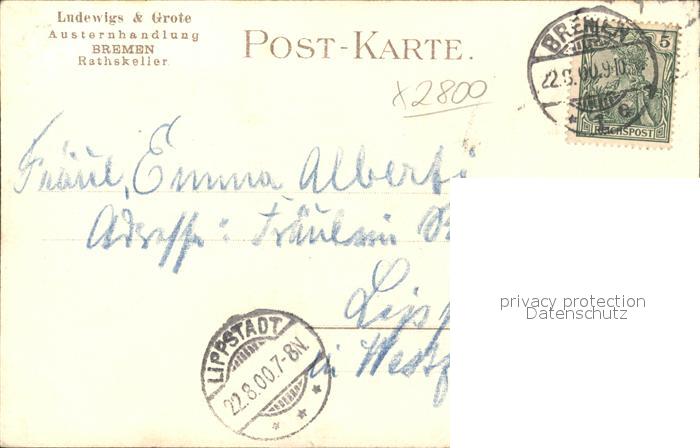 Ludewigs & Grote
Austernhandlung
BREMEN
Rathskeller.
POST-KARTE.
BREMEN
22.8.00.9-10
1 c
5
REICHSPOST
x2800
Fräul. Emma Alberti
Adresse: Fräulein
Lipp
in Westf
LIPPSTADT
22.8.00.7-8N.
privacy protection
Datenschutz